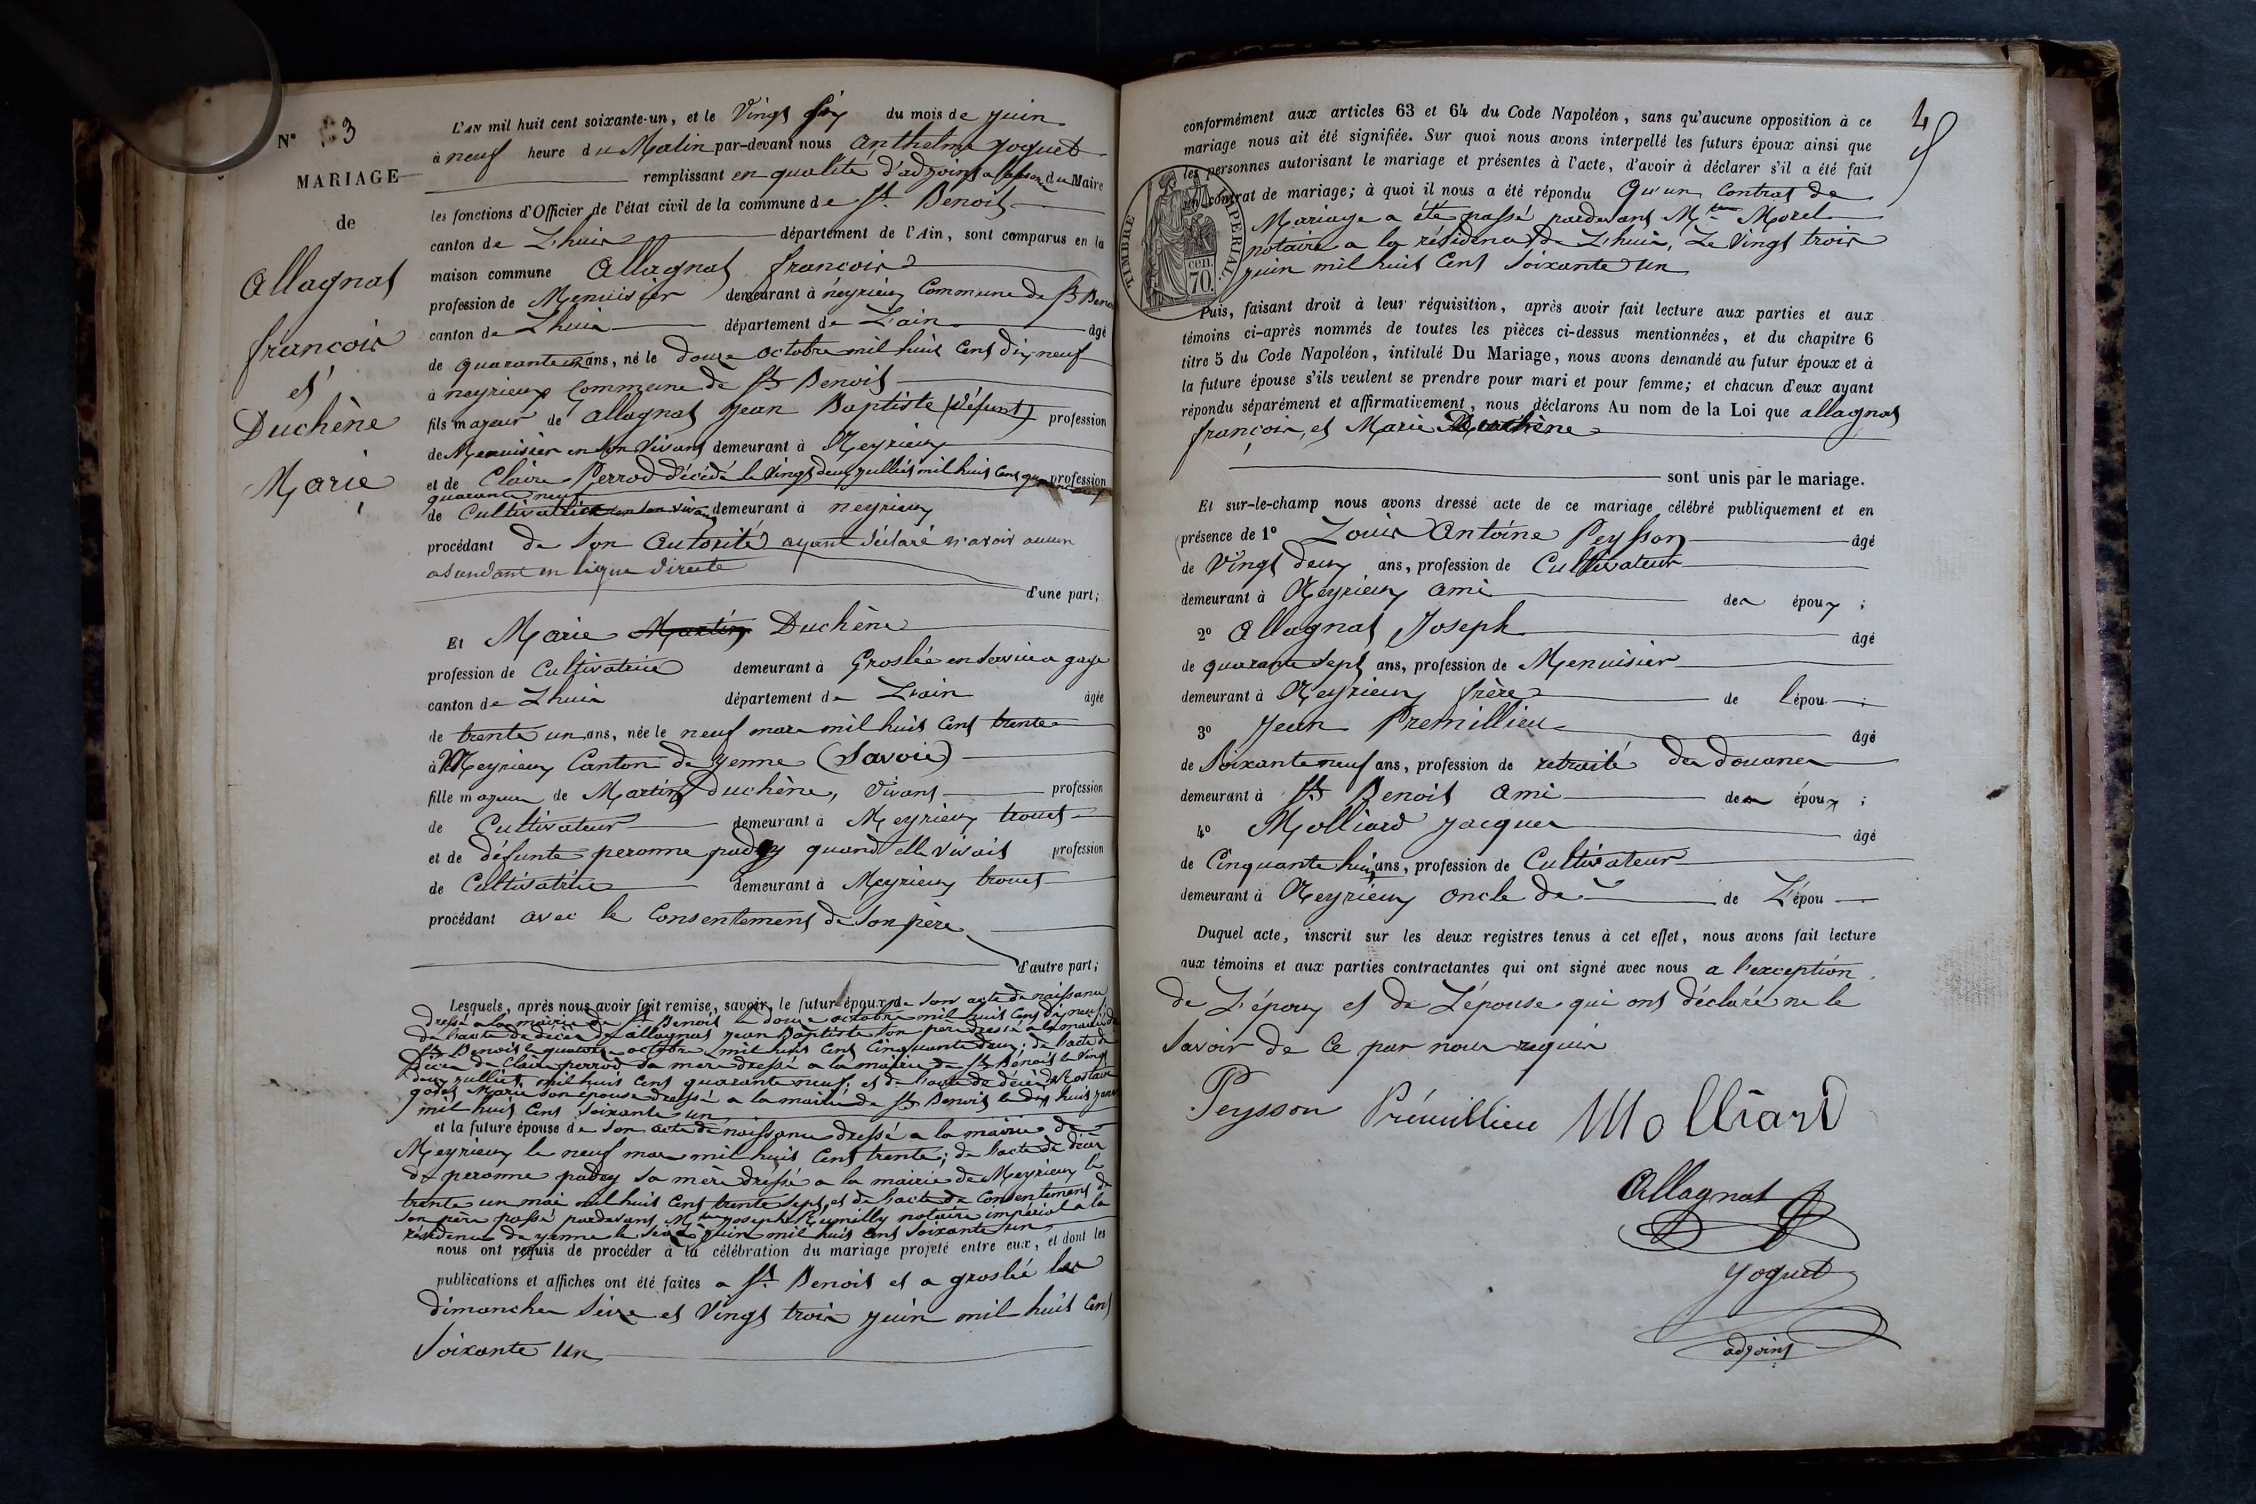 N° 3
MARIAGE
de
Allagnat
françois
et
Duchène
Marie
L'AN mil huit cent soixante-un, et le Vingt six du mois de juin
à neuf heure du Matin par-devant nous Anthelme Joguet
remplissant en qualité d'adjoint a du Maire
les fonctions d'Officier de l'état civil de la commune de St. Benoit
canton de Lhuis département de l'Ain, sont comparus en la
maison commune Allagnat françois
profession de Menuisier demeurant à neyrieux Commune de St Benoit
canton de Lhuis département de L'ain âgé
de quarante un ans, né le douze octobre mil huit Cent dix neuf
à neyrieux Commune de St Benoit
fils majeur de allagnat jean Baptiste (défunt) profession
de Menuisier en son Vivant demeurant à Neyrieux
et de Claire Perrod décédé le vingt deux julliet mil huit Cent profession
quarante neuf
de Cultivatrice en son vivant demeurant à neyrieux
procédant de Son Autorité ayant déclaré n'avoir aucun
asendant en ligne directe
d'une part;
Et Marie Martin Duchène
profession de Cultivatrice demeurant à Groslée en service a gage
canton de Lhuis département de L'ain âgée
de trente un ans, née le neuf mars mil huit Cent trente
à Meyrieux Canton de yenne (Savoie)
fille majeure de Martin duchène, Vivant profession
de Cultivateur demeurant à Meyrieux trouet
et de défunte peronne padey quand elle vivait profession
de Cultivatrice demeurant à Meyrieux trouet
procédant avec le Consentement de Son père
d'autre part;
Lesquels, après nous avoir fait remise, savoir, le futur époux de Son acte de naissance
dressé a la mairie de St Benoit le douze octobre mil huit Cent dix neuf
de l'acte de décès d'allagnat jean Baptiste Son père dressé a la mairie de
St Benoit le quatorze octobre mil huit Cent Cinquante deux; de l'acte de
Décès de Claire perrod sa mère dressé a la mairie de St Benoit le Vingt
deux julliet mil huit Cent quarante neuf; et de l'acte de décès de
Marie son épouse dressé a la mairie de St Benoit le dix huit
mil huit Cent Soixante un
et la future épouse de Son acte de naissance dressé a la mairie de
Meyrieux le neuf mars mil huit Cent trente; de l'acte de décès
de peronne padey sa mère dressé a la mairie de Meyrieux le
trente un mai mil huit Cent trente sept et de l'acte de Consentement de
Son père passé pardevant Mtre joseph Rumilly notaire impérial a la
résidence de yenne le seize juin mil huit Cent Soixante un
nous ont requis de procéder à la célébration du mariage projeté entre eux, et dont les
publications et affiches ont été faites a St. Benoit et a groslée les
dimanches Seize et Vingt trois juin mil huit Cent
Soixante Un
4
conformément aux articles 63 et 64 du Code Napoléon, sans qu'aucune opposition à ce
mariage nous ait été signifiée. Sur quoi nous avons interpellé les futurs époux ainsi que
les personnes autorisant le mariage et présentes à l'acte, d'avoir à déclarer s'il a été fait
un contrat de mariage; à quoi il nous a été répondu Qu'un Contrat de
Mariage a été passé pardevant Mtre Morel
notaire a la résidence de Lhuis, Le Vingt trois
juin mil huit Cent Soixante un
TIMBRE IMPERIAL
70 cen.
Puis, faisant droit à leur réquisition, après avoir fait lecture aux parties et aux
témoins ci-après nommés de toutes les pièces ci-dessus mentionnées, et du chapitre 6
titre 5 du Code Napoléon, intitulé Du Mariage, nous avons demandé au futur époux et à
la future épouse s'ils veulent se prendre pour mari et pour femme; et chacun d'eux ayant
répondu séparément et affirmativement, nous déclarons Au nom de la Loi que allagnat
françois, et Marie Duchène
sont unis par le mariage.
Et sur-le-champ nous avons dressé acte de ce mariage célébré publiquement et en
présence de 1° Louis Antoine Peysson âgé
de Vingt deux ans, profession de Cultivateur
demeurant à Neyrieux ami des époux;
2° Allagnat Joseph âgé
de quarante sept ans, profession de Menuisier
demeurant à Neyrieux frère de l'épou;
3° Jean Premillieu âgé
de Soixante neuf ans, profession de retraité des douanes
demeurant à St Benoit ami des époux;
4° Molliard Jacques âgé
de Cinquante huit ans, profession de Cultivateur
demeurant à Neyrieux oncle de de L'épou
Duquel acte, inscrit sur les deux registres tenus à cet effet, nous avons fait lecture
aux témoins et aux parties contractantes qui ont signé avec nous a l'exception
de L'époux et de L'épouse qui ont déclaré ne le
Savoir de Ce par nous requis
Peysson Prémillieu Molliard
Allagnat
Joguet
adjoint